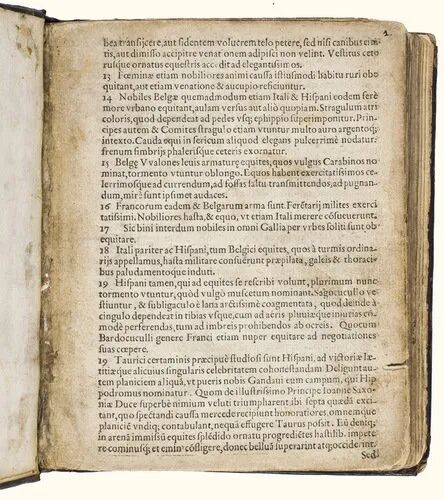 2
bea transijcere, aut sidentem volucrem telo petere, sed nisi canibus ci-
tis, aut dimisso accipitre venat onem adipisci non velint. Vestitus cete
rusque ornatus equestris acc ditad elegantissimos.
13 Fœminæ etiam nobiliores animi caussa istiusmodi habitu ruri obe
quitant, aut etiam venatione & aucupio reficiuntur.
14 Nobiles Belgæ quemadmodum etiam Itali & Hispani eodem ferè
more vrbano equitant, aulam versus aut aliò quopiam. Stragulum atri
coloris, quod dependeat ad pedes vsq; ephippio superimponitur. Prin-
cipes autem & Comites stragulo etiam vtuntur multo auro argentoq;
intexto. Cauda equi in sericum aliquod elegans pulcerrimè nodatur:
frenum fimbrijs phalerisque ceteris exornatur.
15 Belgę Vvalones leuis armaturę equites, quos vulgus Carabinos no-
minat, tormento vtuntur oblongo. Equos habent exercitatissimos ce-
lerrimosque ad currendum, ad fossas saltu transmittendos, ad pugnan-
dum, mirè sunt ipsimet audaces.
16 Francorum eadem & Belgarum arma sunt. Feretarij milites exerci
tatissimi. Nobiliores hasta, & equo, vt etiam Itali merere cōsueuerunt.
17 Sic bini interdum nobiles in omni Gallia per vrbes soliti sunt ob-
equitare.
18 Itali pariter ac Hispani, tum Belgici equites, quos à turmis ordina-
rijs appellamus, hasta militare consueuerunt præpilata, galeis & thoraci
bus paludamentoque induti.
19 Hispani tamen, qui ad equites se rescribi volunt, plurimum nunc
tormento vtuntur, quod vulgò muscetum nominant. Sagocucullo ve-
stiuntur, & subligaculo è lana arctissimè coagmentata, quod deinde à
cingulo dependeat in tibias vsque, cum ad aëris pluuięque iniurias cō-
modè perferendas, tum ad imbreis prohibendos ab ocreis. Quocum
Bardocuculli genere Franci etiam nuper equitare ad negotiationes
suas cœpere.
19 Taurici certaminis præcipuè studiosi sunt Hispani, ad victoriæ læ-
titiæque alicuius singularis celebritatem cohonestandam. Deligunt au-
tem planiciem aliquā, vt pueris nobis Gandaui eum campum, qui Hip
podromus nominatur. Quom de illustrissimo Principe Ioanne Saxo-
niæ Duce superbè nimium veluti triumpharent abi septa quędā exci-
tant, quo spectandi caussa mercede recipiunt honoratiores, omnemque
planiciē vndiq; contabulant, nequà effugere Taurus possit. Eū deniq;
in arenā immissū equites splēdido ornatu progrediētes hastilib. impete
re cominus q; et emin' cōsligere, donec belluā superarint atq; occiderint.
Sed